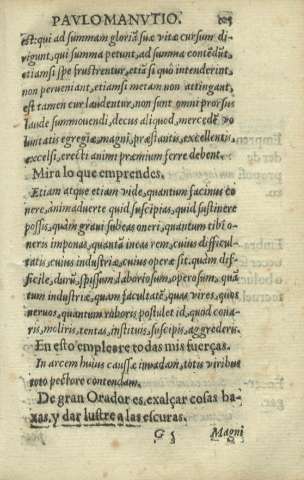 PAVLO MANVTIO.
est: qui ad summam gloriā suæ vitæ cursum di-
rigunt, qui summa petunt, ad summa contēdūt,
etiamsi spe frustrentur, etiā si quò intenderint,
non perueniant, etiamsi metam non attingant,
est tamen cur laudentur, non sunt omni prorsus
laude summouendi, decus aliquod, mercedē vo
luntatis egregiæ, magni, præstantis, excellentis,
excelsi, erecti animi præmium ferre debent.
Mira lo que emprendes.
Etiam atque etiam vide, quantum facinus co
nere, animaduerte quid suscipias, quid sustinere
possis, quàm graui subeas oneri, quantum tibi o-
neris imponas, quantū ineas rem, cuius difficul-
tatis, cuius industriæ, cuius operæ sit. quàm dif-
ficile, durū, spissum, laboriosum, operosum, quā
tum industriæ, quam facultatē, quas vires, quos
neruos, quantum roboris postulet id, quod cona-
ris, moliris, tentas, institus, suscipis, aggrederis.
En esto empleare todas mis fuerças.
In arcem huius caussæ inuadam, totis viribus
toto pectore contendam.
De gran Orador es, exalçar cosas ba-
xas, y dar lustre a las escuras.
G 5 Magni